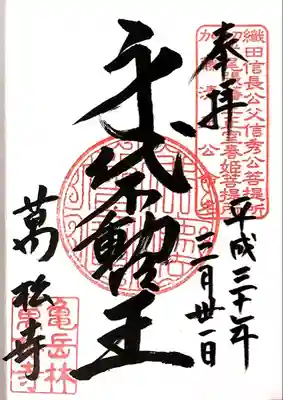 織田信長公父信秀公菩提所
奉拝
平成三十一年
三月卅一日
身代不動明王
萬松寺
龜岳林
萬松寺